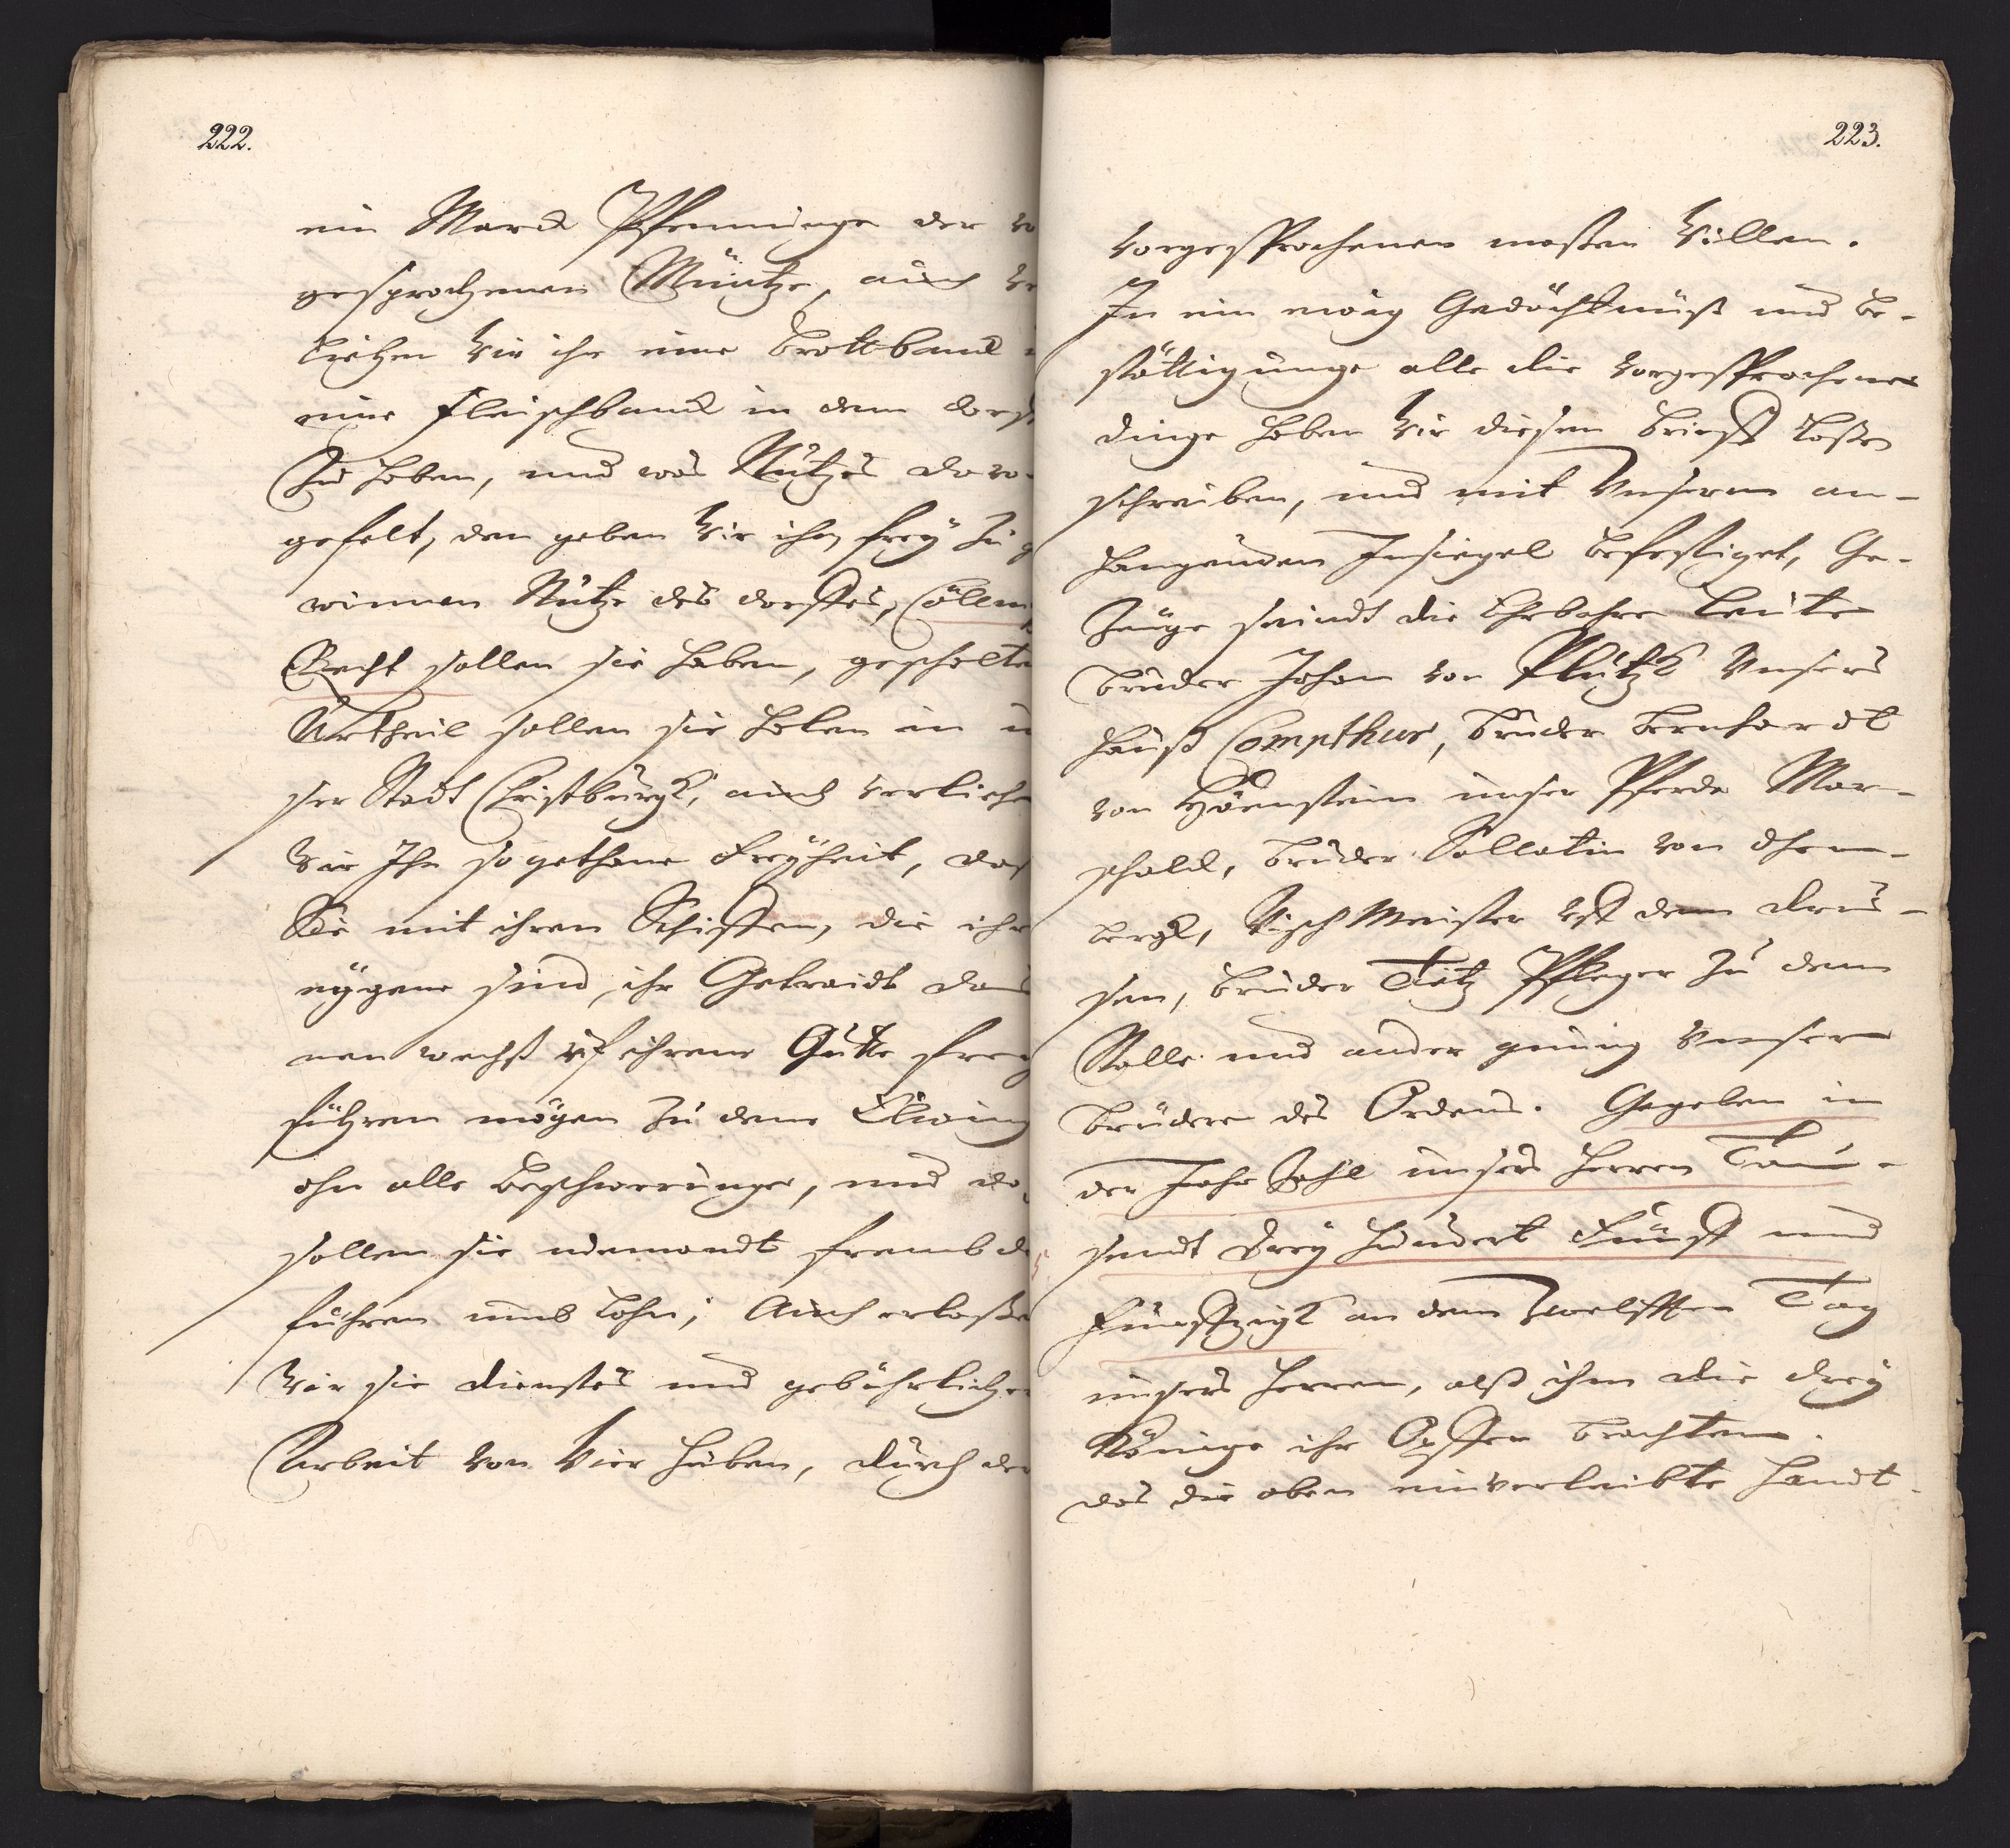 222.
ein Marck Pfenninge der vo
gesprochenen Müntze, auch ve
liehen Wir ihr eine Brottbanck
eine Fleischbanck in dem dorff
Zu haben, und was Nutzes davo-
gefelt, den geben Wir ihn frey zu g
winnen Nütze des dorffes, Cöllm
Recht sollen sie haben, gescholte
Urtheil sollen sie holen in u
ser Stadt Christburgk, auch verliehe
Wir Ihn so gethane Freyheit, das
Sie mit ihren Schiffen, die ihr
eygene sind, ihr Getraidt das
nen wechst uf ihrem Gutte frey
führen mögen zu dem Elwing
ohn alle Beschwerunge, und do
sollen sie niemandt frembde
führen umb Lohn; Auch erlaße
Wir sie dienstes und gebührlicher
Arbeit von Vier Huben, durch der
223.
vorgesprochenen maßen Willen.
In ein ewig Gedächtnüß und Be-
stättigunge alle die vorgesprochenen
dinge haben Wir diesen Brieff laßen
schreiben, und mit Unserem an-
hangenden Insiegel befestiget, Ge-
Zeuge seindt die Ehrbahre Leute
Bruder Johan von Plutzk Unsers
Hauß Compthur, Bruder Bernhardt
von Höenstein unser Pferde Mar-
schalck, Bruder Sallatin von
bergk, Visch Meister uff dem Drau-
sen, Bruder Titz Pfleger zu dem
Stalle und ander genung Unser
Brüder des Ordens. Gegeben in
der Jahr Zahl unsers Herren Tau-
sendt Drey hundert Fünff und
Fünffzigk an dem Zwelfften Tag
unsers Herren, alß ihm die drey
Könige ihr Opffer brachten.
das die oben einverleibte Handt-